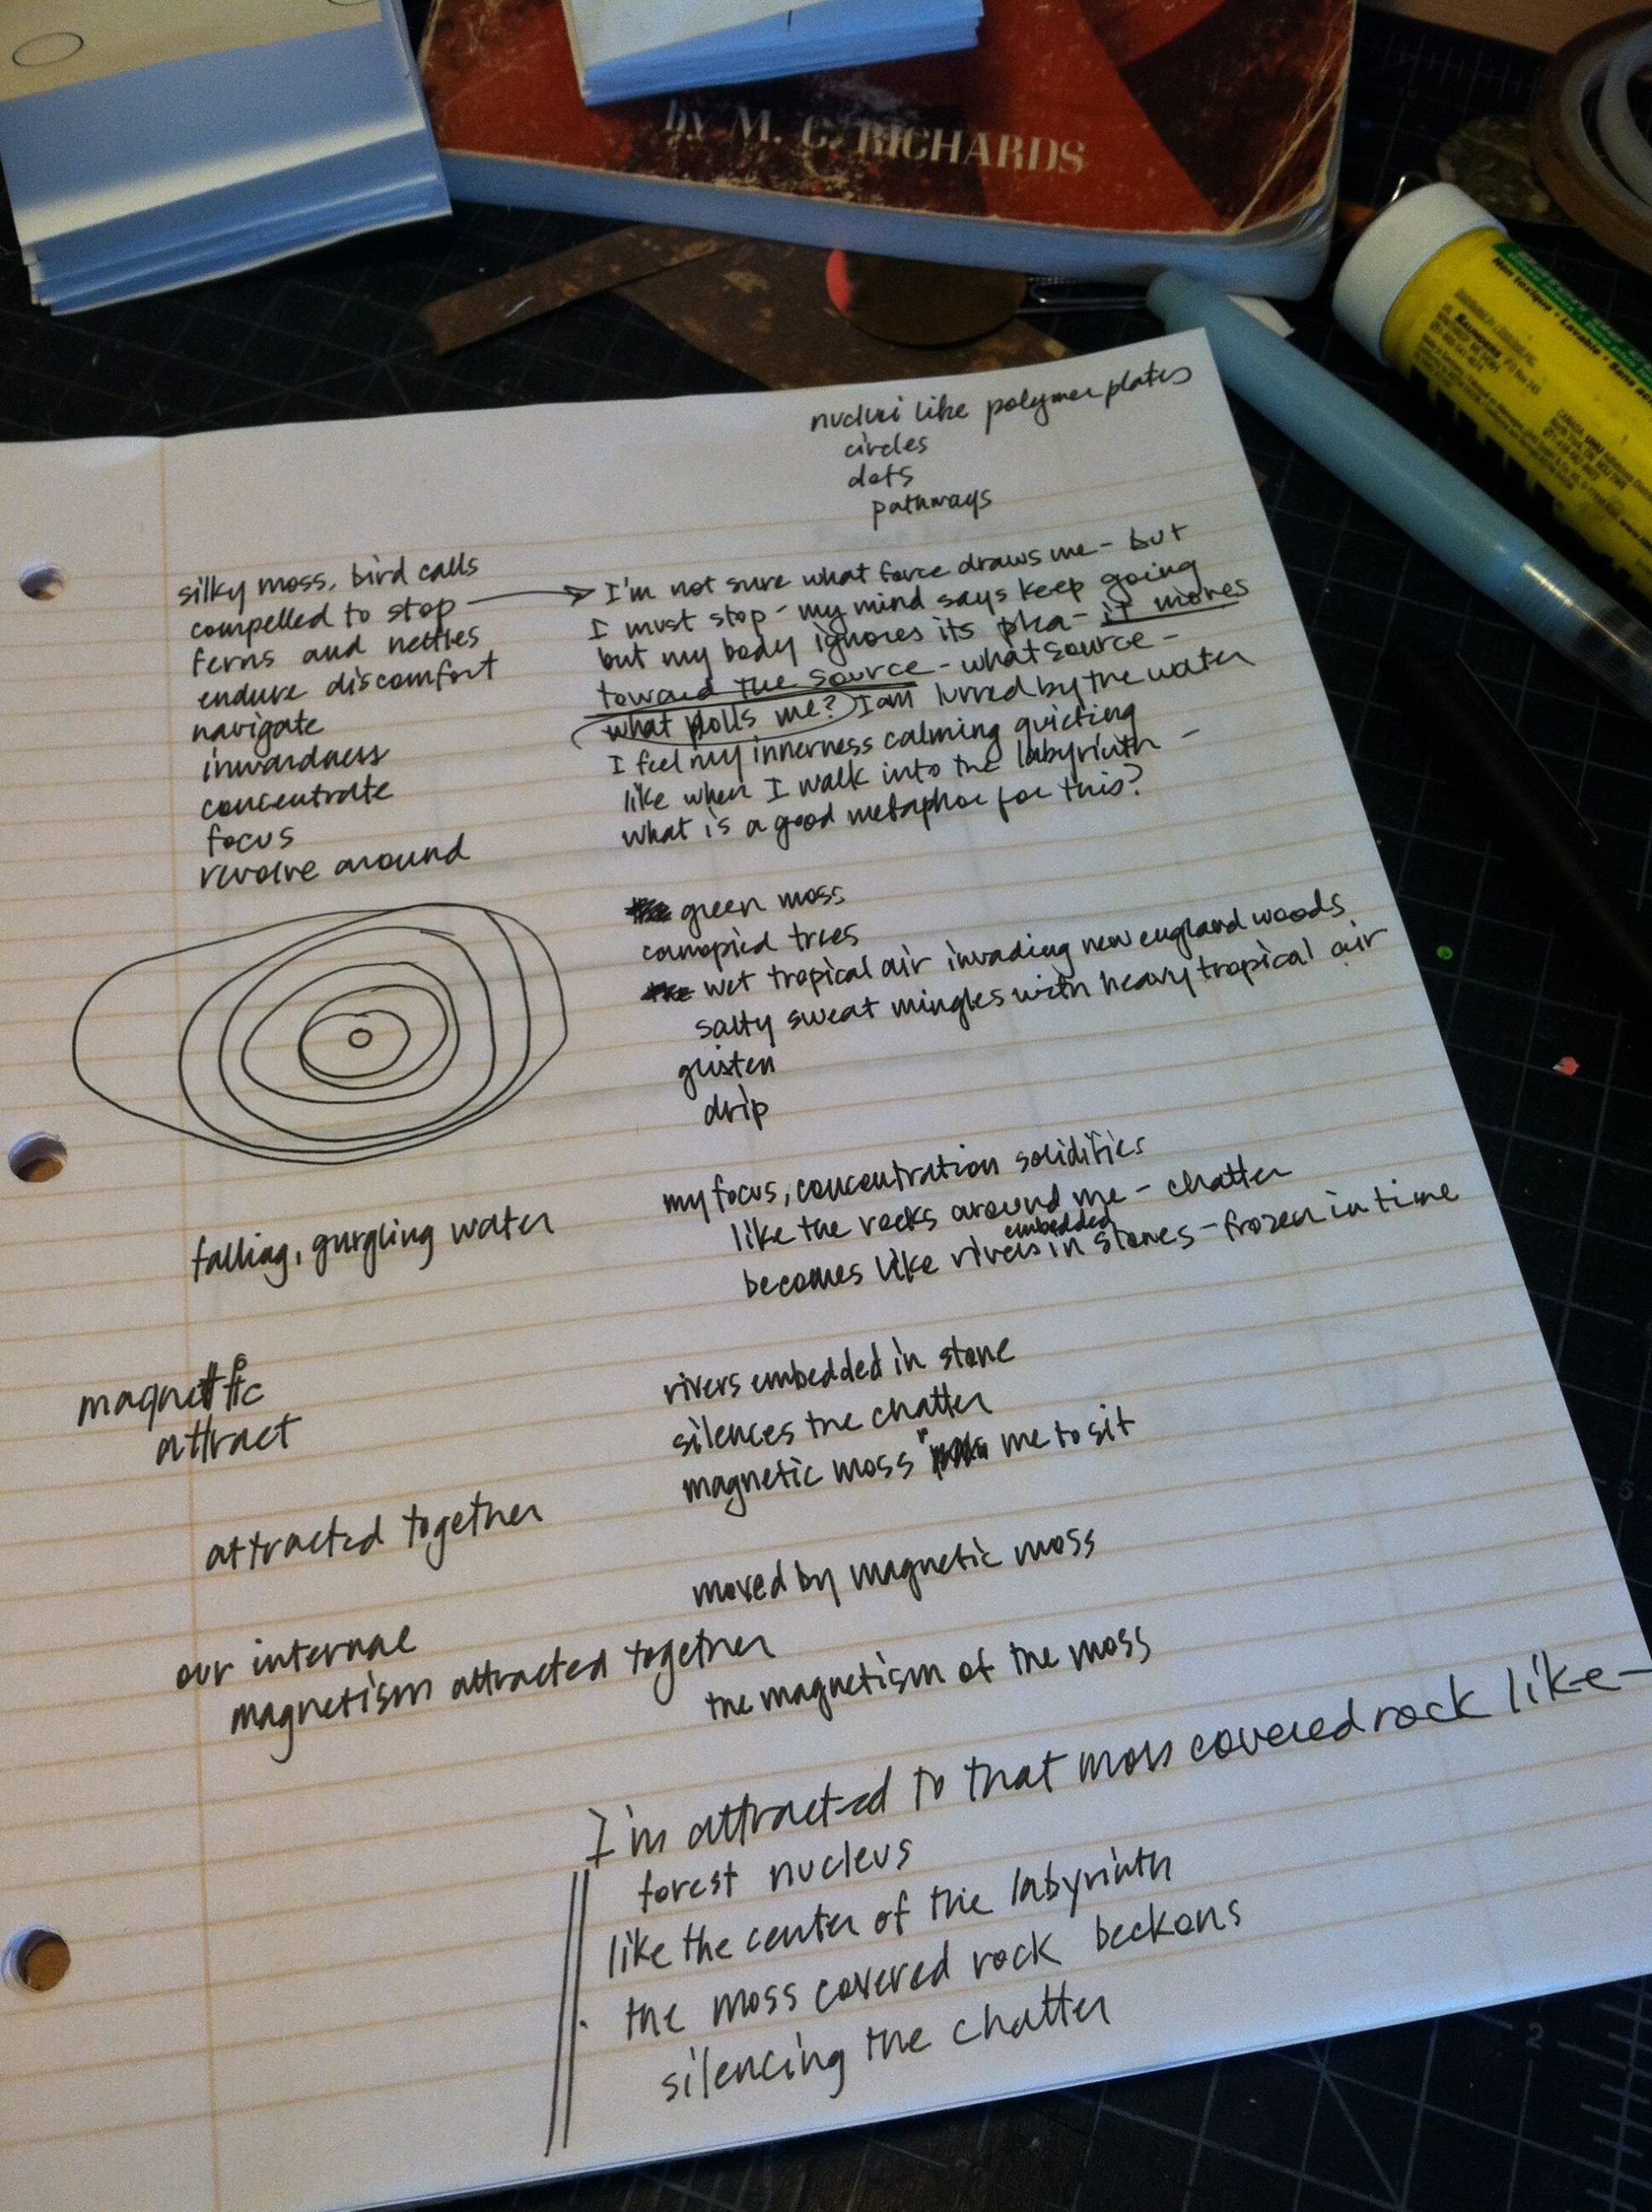 by M. C. RICHARDS
Non toxique • Lavable • Sans
SAUNDERS
nuclei like polymer plates
circles
dots
pathways
silky moss, bird calls
compelled to stop
ferns and nettles
endure discomfort
navigate
inwardness
concentrate
focus
revolve around
I'm not sure what force draws me - but
I must stop - my mind says keep going
but my body ignores its plea - it moves
toward the source - what source -
what pulls me? I am lurred by the water
I feel my innerness calming quieting
like when I walk into the labyrinth -
what is a good metaphor for this?
green moss
canopied trees
wet tropical air invading new england woods
salty sweat mingles with heavy tropical air
glisten
drip
falling, gurgling water
my focus, concentration solidifies
like the rocks around me - chatter
becomes like rivers embedded in stones - frozen in time
magnetic
attract
rivers embedded in stone
silences the chatter
magnetic moss me to sit
attracted together
moved by magnetic moss
our internal
magnetism attracted together
the magnetism of the moss
I'm attracted to that moss covered rock like -
forest nucleus
like the center of the labyrinth
the moss covered rock beckons
silencing the chatter
5
2